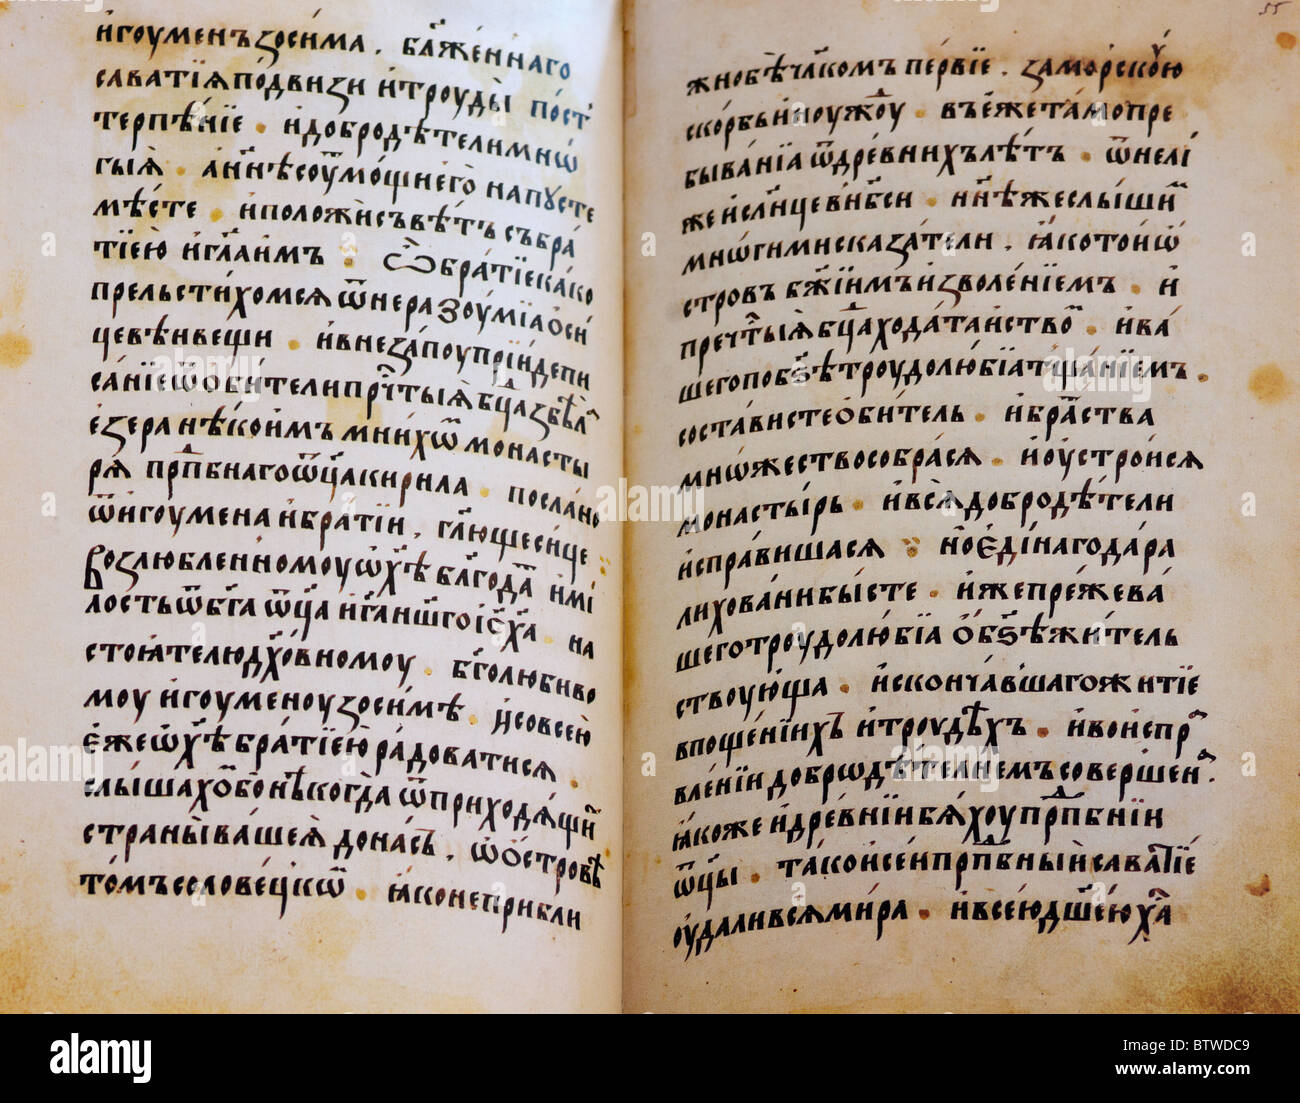 игоуменъ зосима . бл҃женнаго
саватїа подвиѕи и троуды пост
терпѣнїе . и добродѣтели мнѡ
гыѧ . а нн҃ѣ соумощнего на пꙋсте
мѣсте . и положис ъвѣтъ събра
тїею и гл҃аимъ . Ѽ братїе како
прельстихомся ѿ неразоумїа оси
цевѣн вещи . и внезапоу прїиде пи
санїе ѿ обители пр҃чтыя бц҃а з бѣл
езера нѣкоимъ мнихѿ монасты
ря прп҃бнаго ѿц҃а кирила . послано
ѿ игоумена и братїи , гл҃юще сице
Возлюбленномоу ѡ х҃ѣ благода и ми
лость ѿ бг҃а ѿц҃а и г҃а нш҃го іс҃ х҃а на
стоятелю дх҃овномоу . бг҃олюбиво
моу игоуменоу зосимѣ . и со всею
еже ѡ х҃ѣ братїею радоватися .
слышахѡ бо нѣкогда ѿ приходящи
страны вашея до нас . ѡ островѣ
томъ соловецкѡ . яко не прибли
жно бѣ чл҃комъ первїе . за морскою
скорбь и ноужоу . въ еже тамо пре
быванїа ѿ древнихъ лѣтъ . ѿнели
же и сл҃нце в нб҃си . и нн҃ѣ же слыши
многими сказатели , яко той ѡ
стровъ бж҃їимъ изволенїемъ . и
преч҃тыя бц҃а ходатайство . и ва
шего побѕѣ троудолюбїа тщанїемъ .
составист е обитель . и бра҃тства
мнѡжество собрася . и оустроися
монастырь . и вся добродѣтели
исправишася . но единаго дара
лиховани бысте . иже преже ва
шего троудолюбїа о бѕѣ житель
ствоующа . и скончавшаго житїе
в пощенїих и троудѣхъ . и во испр
вленїи добрѡдѣтелнемъ совершен .
якоже и древнїи бяхоу прп҃бнїи
ѿцы . тако и сеи прп҃бныи саватїе
оудаливсꙗ мира . и всею дш҃ею х҃а
55
alamy
Image ID: BTWDC9
www.alamy.com